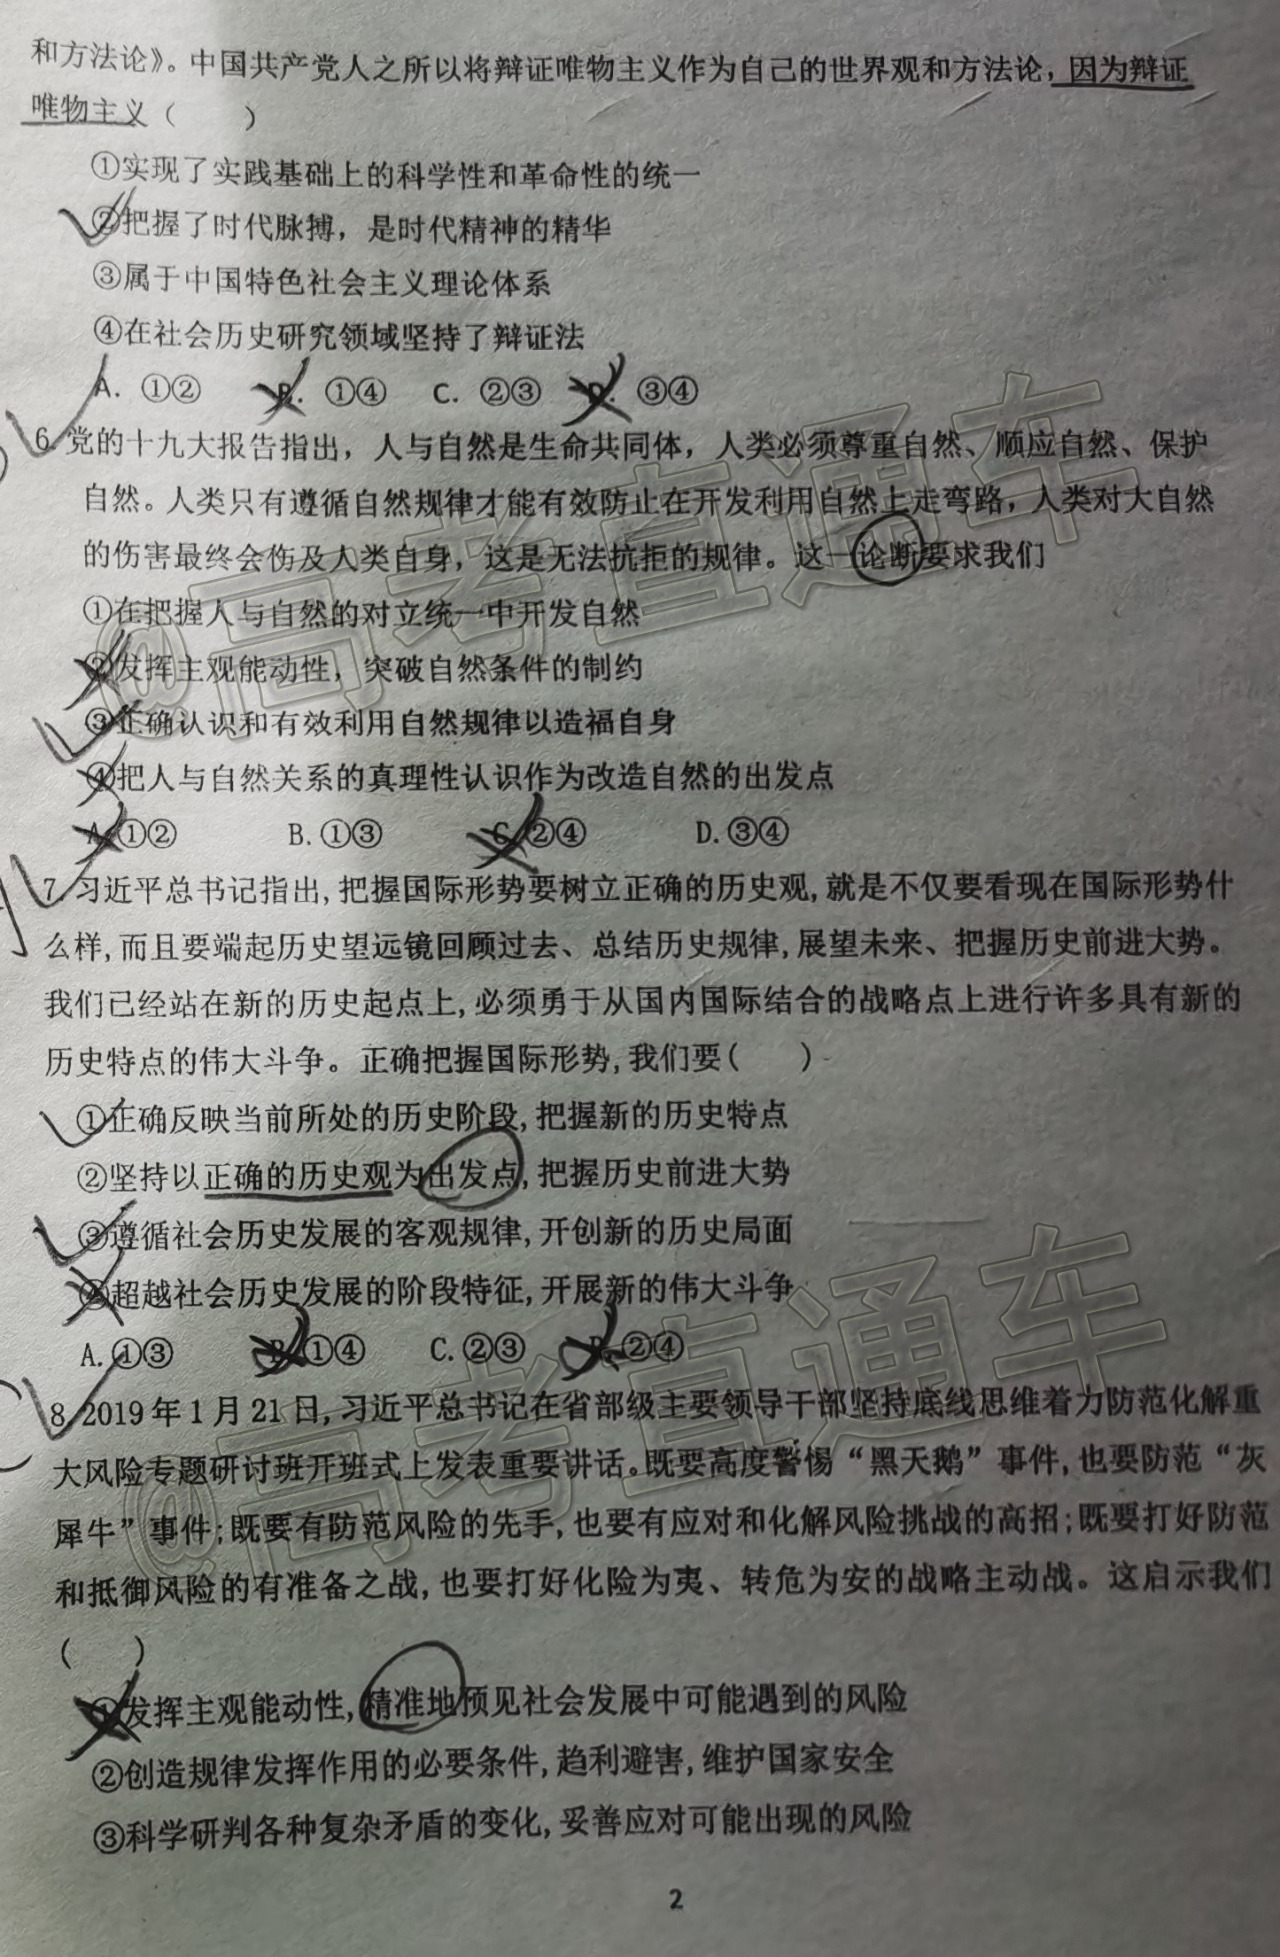 和方法论》。中国共产党人之所以将辩证唯物主义作为自己的世界观和方法论，因为辩证
唯物主义（　　）
①实现了实践基础上的科学性和革命性的统一
②把握了时代脉搏，是时代精神的精华
③属于中国特色社会主义理论体系
④在社会历史研究领域坚持了辩证法
A. ①② B. ①④ C. ②③ D. ③④
6. 党的十九大报告指出，人与自然是生命共同体，人类必须尊重自然、顺应自然、保护
自然。人类只有遵循自然规律才能有效防止在开发利用自然上走弯路，人类对大自然
的伤害最终会伤及人类自身，这是无法抗拒的规律。这一论断要求我们
①在把握人与自然的对立统一中开发自然
②发挥主观能动性，突破自然条件的制约
③正确认识和有效利用自然规律以造福自身
④把人与自然关系的真理性认识作为改造自然的出发点
A.①② B.①③ C.②④ D.③④
7. 习近平总书记指出,把握国际形势要树立正确的历史观,就是不仅要看现在国际形势什
么样,而且要端起历史望远镜回顾过去、总结历史规律,展望未来、把握历史前进大势。
我们已经站在新的历史起点上,必须勇于从国内国际结合的战略点上进行许多具有新的
历史特点的伟大斗争。正确把握国际形势,我们要(　　)
①正确反映当前所处的历史阶段,把握新的历史特点
②坚持以正确的历史观为出发点,把握历史前进大势
③遵循社会历史发展的客观规律,开创新的历史局面
④超越社会历史发展的阶段特征,开展新的伟大斗争
A.①③ B.①④ C.②③ D.②④
8. 2019年1月21日,习近平总书记在省部级主要领导干部坚持底线思维着力防范化解重
大风险专题研讨班开班式上发表重要讲话。既要高度警惕“黑天鹅”事件,也要防范“灰
犀牛”事件;既要有防范风险的先手,也要有应对和化解风险挑战的高招;既要打好防范
和抵御风险的有准备之战,也要打好化险为夷、转危为安的战略主动战。这启示我们
(　　)
①发挥主观能动性,精准地预见社会发展中可能遇到的风险
②创造规律发挥作用的必要条件,趋利避害,维护国家安全
③科学研判各种复杂矛盾的变化,妥善应对可能出现的风险
2
@高考直通车
@高考直通车